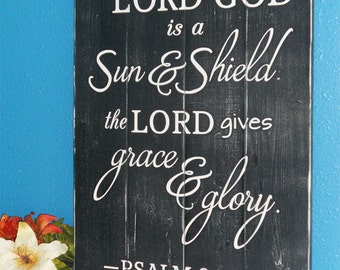 LORD GOD
is a
Sun & Shield.
the LORD gives
grace
& glory.
—PSALM